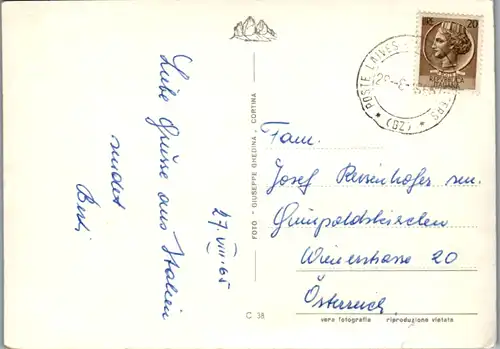 Liebe Grüsse aus Italien
sendet
Berti
27. VIII. 65
FOTO - GIUSEPPE GHEDINA, CORTINA
C 38
20
POSTE LAIVES
(BZ)
Fam.
Josef Reisenhofer sen.
Gumpoldskirchen
Wienerstrasse 20
Österreich
vera fotografia riproduzione vietata